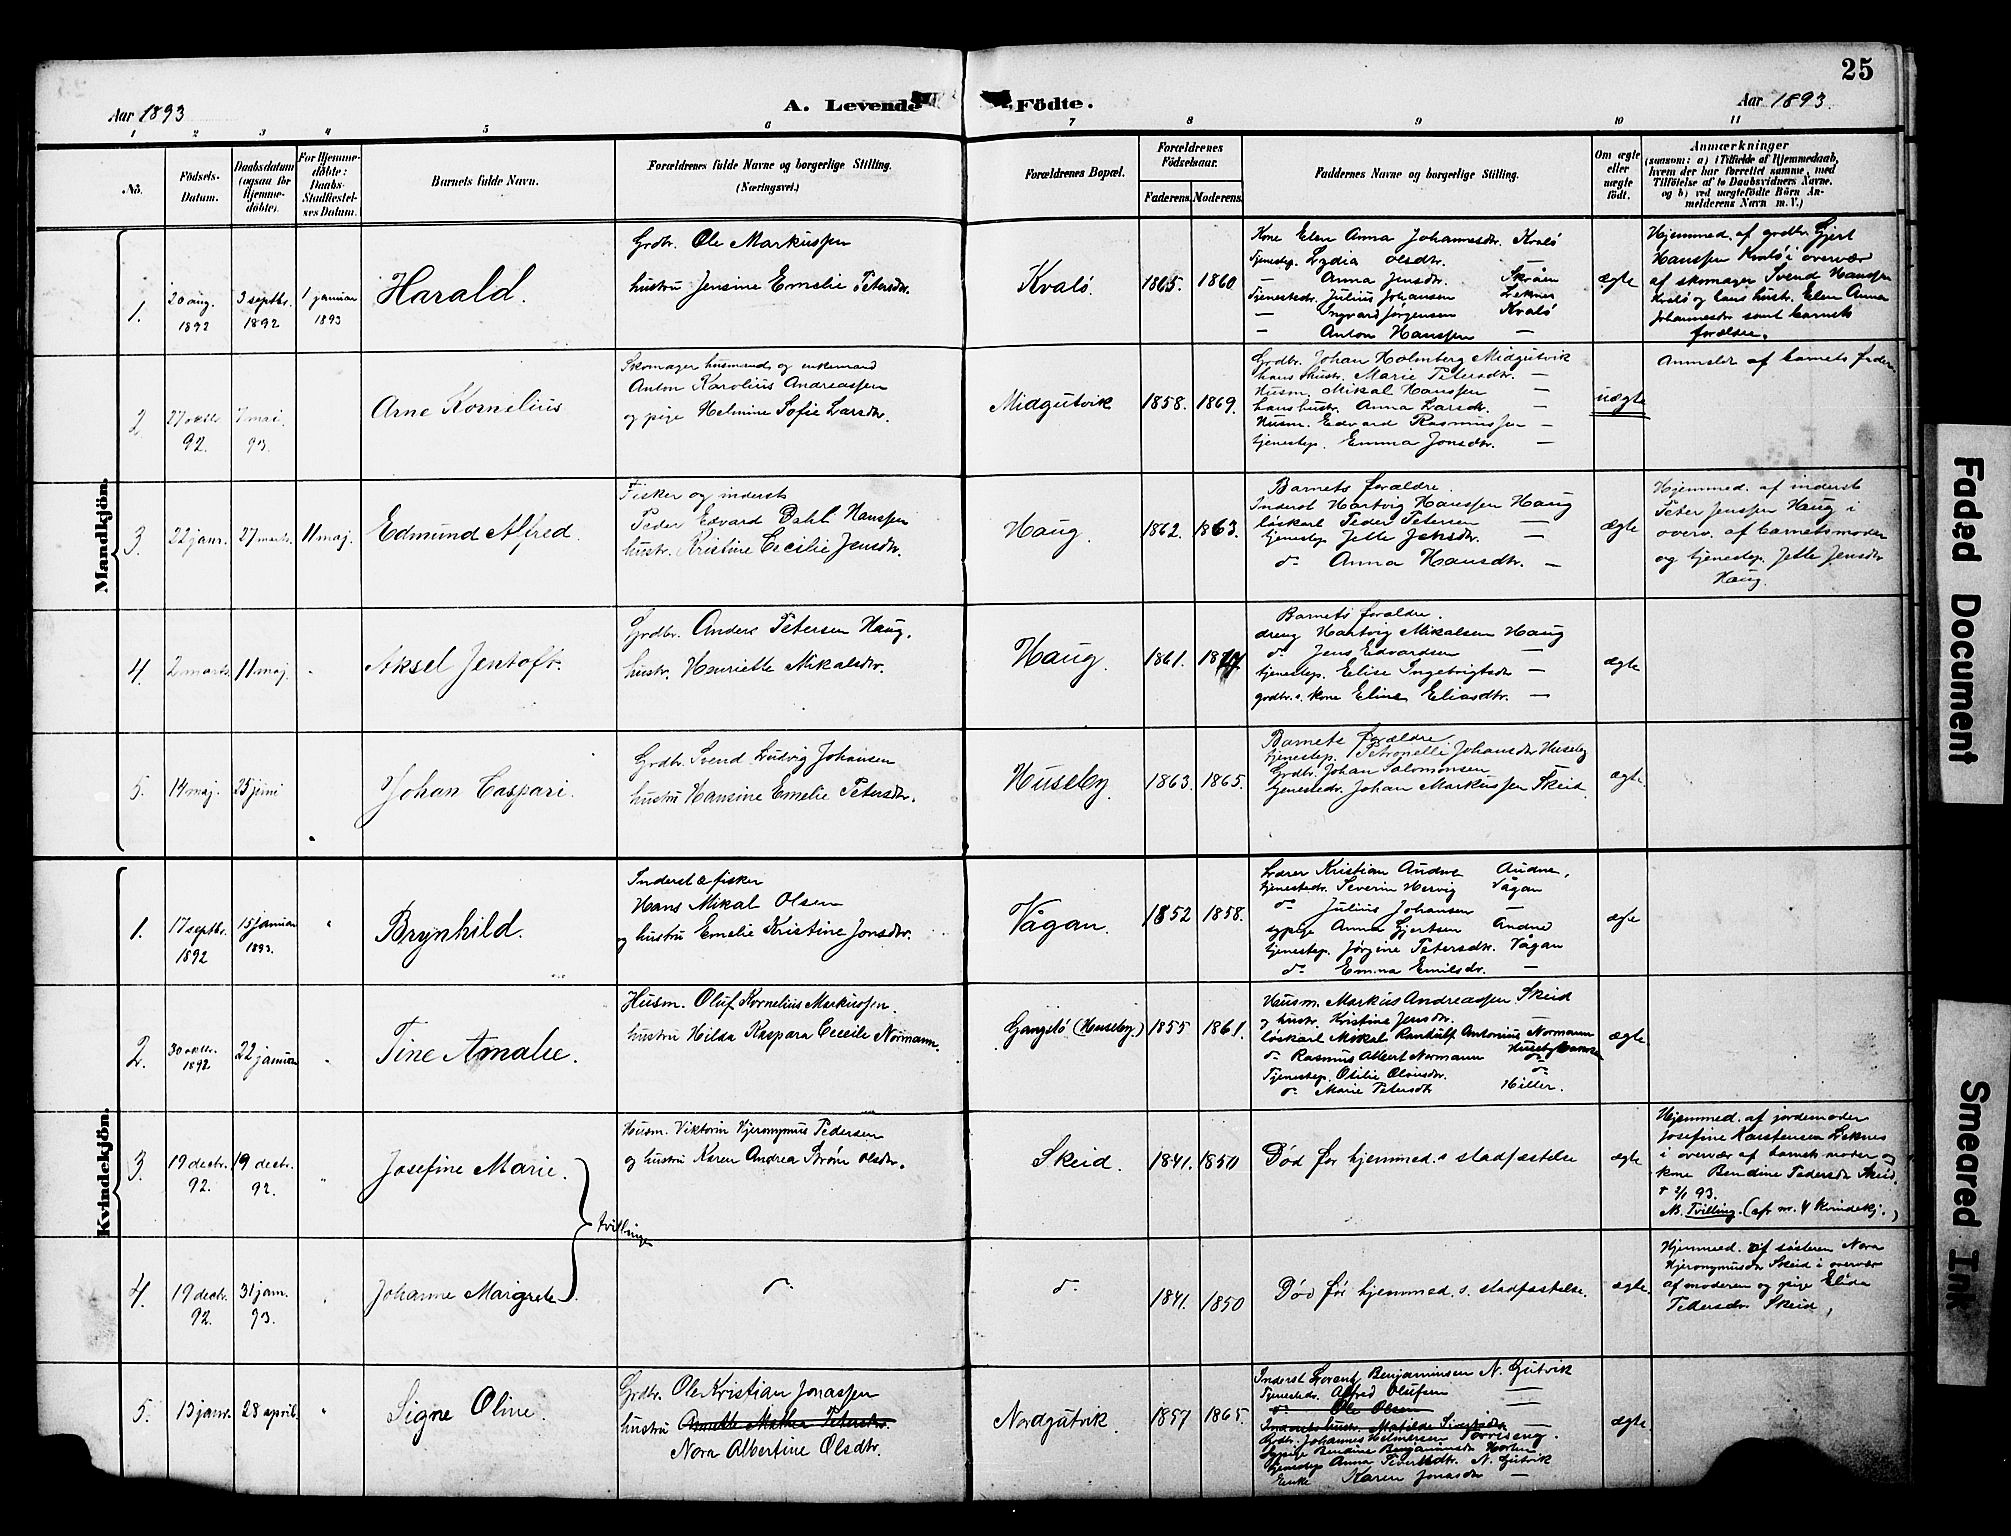 25
Aar 1893
A. Levende Födte.
Aar 1893.
1 2 3 4 5 6 7 8 8 9 10 11
No.
Födsels-
Datum.
Daabsdatum
(ogsaa for
Hjemme-
döbte).
For Hjemme-
döbte:
Daabs-
Stadfæstel-
ses Datum.
Barnets fulde Navn.
Forældrenes fulde Navne og borgerlige Stilling.
(Næringsvei.)
Forældrenes Bopæl.
Forældrenes
Födselsaar.
Faderens.
Moderens.
Faddernes Navne og borgerlige Stilling.
Om ægte
eller
uægte
födt.
Anmærkninger
(saasom: a) i Tilfælde af Hjemmedaab,
hvem der har forrettet samme, med
Tilföielse af to Daabsvidners Navne,
og b) ved uægtefödte Börn An-
melderens Navn m. V.)
Mandkjön.
1.
20 aug.
1892
3 septbr.
1892
1 januar
1893
Harald.
Grdbr. Ole Markussen
hustru Jensine Emelie Petersdtr.
Kvalö.
1865.
1860
Kone Elen Anna Johannesdtr. Kvalö
Tjenestep. Lydia Olsdtr. —
— Anna Jensdtr. Skråen
Tjenestedr. Julius Johansen Leknes
— Ingvard Jörgensen Kvalö
— Anton Hanssen —
ægte
Hjemmed. af grdbr. Gjert
Hanssen Kvalö i overvær
af skomager Svend Hanssen
Kvalö og hans hustr. Elen Anna
Johannesdtr samt barnets
forældre.
2.
27 oktbr.
92.
7 mai.
93.
Arne Kornelius
Skomager husmand og enkemand
Anton Karolius Andreassen
og pige Helmine Sofie Larsdtr.
Midgutvik
1858.
1869.
Grdbr. Johan Holmberg Midgutvik
hans hustr. Marie Petersdtr. —
Husm. Mikal Hanssen —
hans hustr. Anna Larsdtr. —
Husm. Edvard Rasmussen —
tjenestep. Emma Jonsdtr. —
uægte
Anmeldt af barnets fader.
3.
22 janr.
27 marts.
11 maj.
Edmund Alfred.
Fisker og inderst
Peder Edvard Dahl Hanssen
hustr. Kristine Cecilie Jensdtr.
Haug.
1862.
1863.
Barnets forældre.
Inderst Hartvig Hanssen Haug
löskarl Peder Petersen —
tjenestep. Jette Jensdtr. —
do Anna Hansdtr. —
ægte
Hjemmed. af inderst
Peter Jenssen Haug i
overv. af barnets moder
og tjenestep. Jette Jensdtr
Haug.
4.
2 marts.
11 maj.
Aksel Jentoft.
Grdbr. Anders Petersen Haug.
hustr. Henriette Mikalsdtr.
Haug.
1861.
Barnets forældre.
dreng Hartvig Mikalsen Haug
do Jens Edvardsen —
tjenestep. Elise Ingebrigtsdtr —
grdbr.s kone Eline Eliasdtr. —
ægte
5.
14 maj.
25 juni
Johan Caspari.
Grdbr. Svend Ludvig Johansen
hustru Hansine Emelie Petersdtr.
Huseby.
1863.
1865.
Barnets forældre
tjenestep. Petronelle Johansdtr Huseby
Grdbr. Johan Salomonsen
tjenestedr. Johan Markussen Skeid.
ægte.
Kvindekjön.
1.
17 septbr.
1892
15 januar
1893.
Brynhild.
Inderst & fisker
Hans Mikal Olsen
og hustru Emelie Kristine Jonsdtr.
Vågan.
1852
1858.
Lærer Kristian Andnæ Andnæ,
tjenestedr. Severin Hervig Vågan
do Julius Johansen —
sypige Anna Gjertsen Andnæ
tjenestep. Jörgine Petersdtr. Vågan
do Emma Emilsdtr. —
ægte
2.
30 oktbr.
1892
22 januar
Tine Amalie.
Husm. Oluf Kornelius Markussen.
hustru Hilda Kaspara Cecilie Normann.
Gangstö (Huseby)
1855
1861.
Husm. Markus Andreassen Skeid
og hustr. Kristine Jensdtr. —
löskarl Mikal Randulf Antonius Normann
do Rasmus Albert Normann
Tjenestep. Otilie Olausdtr. do
do Marie Petersdtr Hitter.
ægte
3.
19 decbr.
92.
19 decbr.
92.
Josefine Marie.
tvillinge
Husm. Viktorin Hjeronymus Pedersen
og hustru Karen Andrea Ström Olsdtr.
Skeid.
1841.
1850
Död før hjemmed.s stadfæstelse
ægte
Hjemmed. af jordemoder
Josefine Karstensen Leknes
i overvær af barnets moder og
kone Bendine Pedersdtr Skeid.
† 2/1 93.
NB. Tvilling. (afr no. 4 Kvindekj.)
4.
19 decbr.
92.
31 janr.
93.
Johanne Margrete.
do
do
1841.
1850
Död før hjemmed.s. stadfæstelse.
ægte.
Hjemmed. af søsteren Nora
Hjeronymusdtr Skeid i overvær
af moderen og pige Elida
Pedersdtr Skeid,
5.
13 janr.
28 april.
Signe Oline.
Grdbr. Ole Kristian Jonassen
hustru Anette Mathea Petersdtr.
Nora Albertine Olsdtr.
Nordgutvik
1857
1865.
Inderst Lorents Benjaminsen N. Gutvik
Tjenestedr. Alfred Olufsen —
do Ole Olsen —
Inderstshustr. Matilde Sivertsdtr —
Grdbr. Johannes Helmersen Torriseng.
Sypige Bendine Benjaminsdtr Horten
tjenestep Anna Sivertsdtr. N. Gutvik
Enke Karen Jonasdtr —
ægte
Faded Document
Smeared Ink